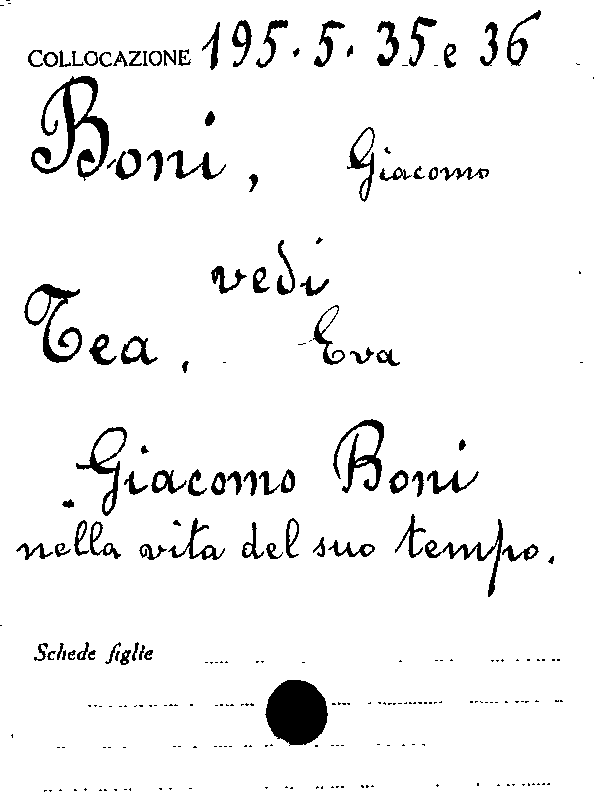 COLLOCAZIONE 195.5.35 e 36
Boni, Giacomo
vedi
Tea, Eva
Giacomo Boni
nella vita del suo tempo.
Schede figlie